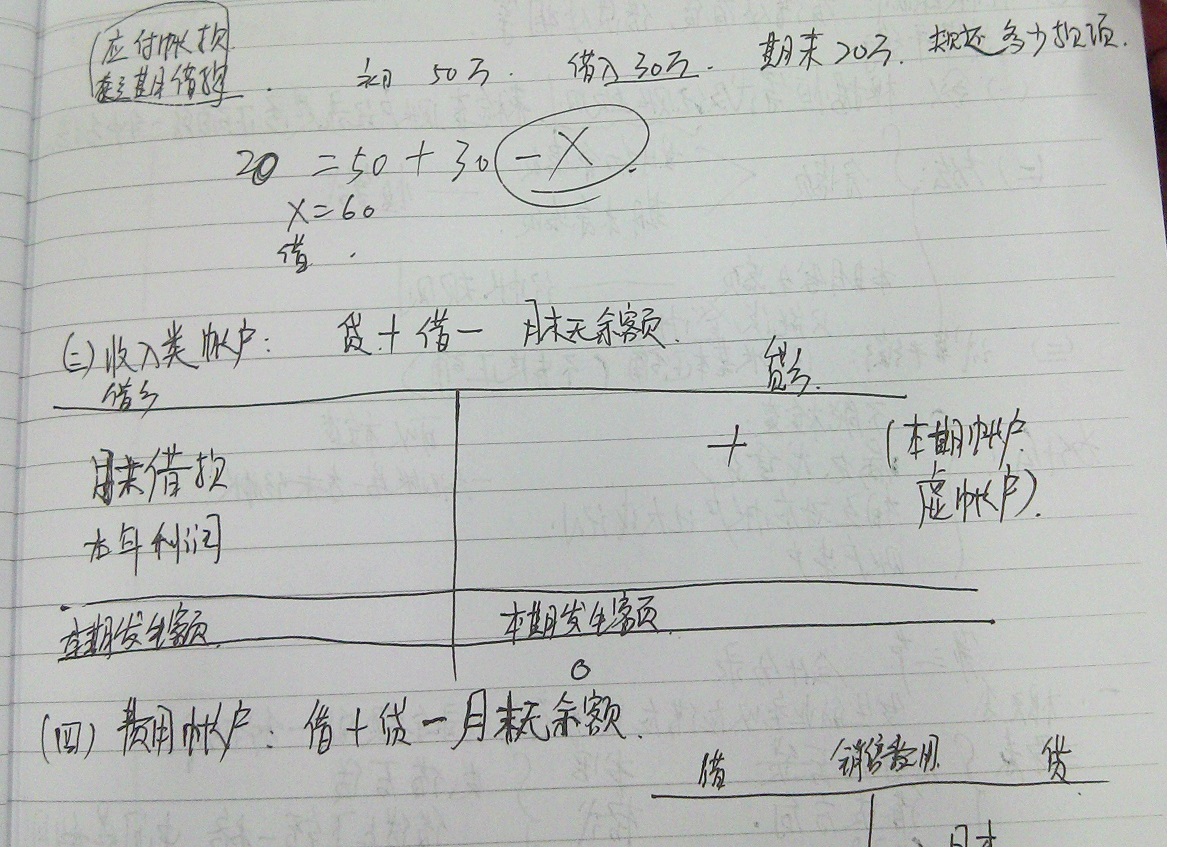 应付帐款
短期借款. 初 50万. 借入30万. 期末20万. 归还多少款项.
20 = 50 + 30 - X.
X = 60
借.
(三) 收入类帐户: 贷+ 借- 月末无余额.
借方 贷方.
月末借款 + (本期帐户
本年利润 虚帐户).
本期发生额. 本期发生额.
0
(四) 费用帐户: 借+贷- 月末无余额.
借 销售费用 贷
月末